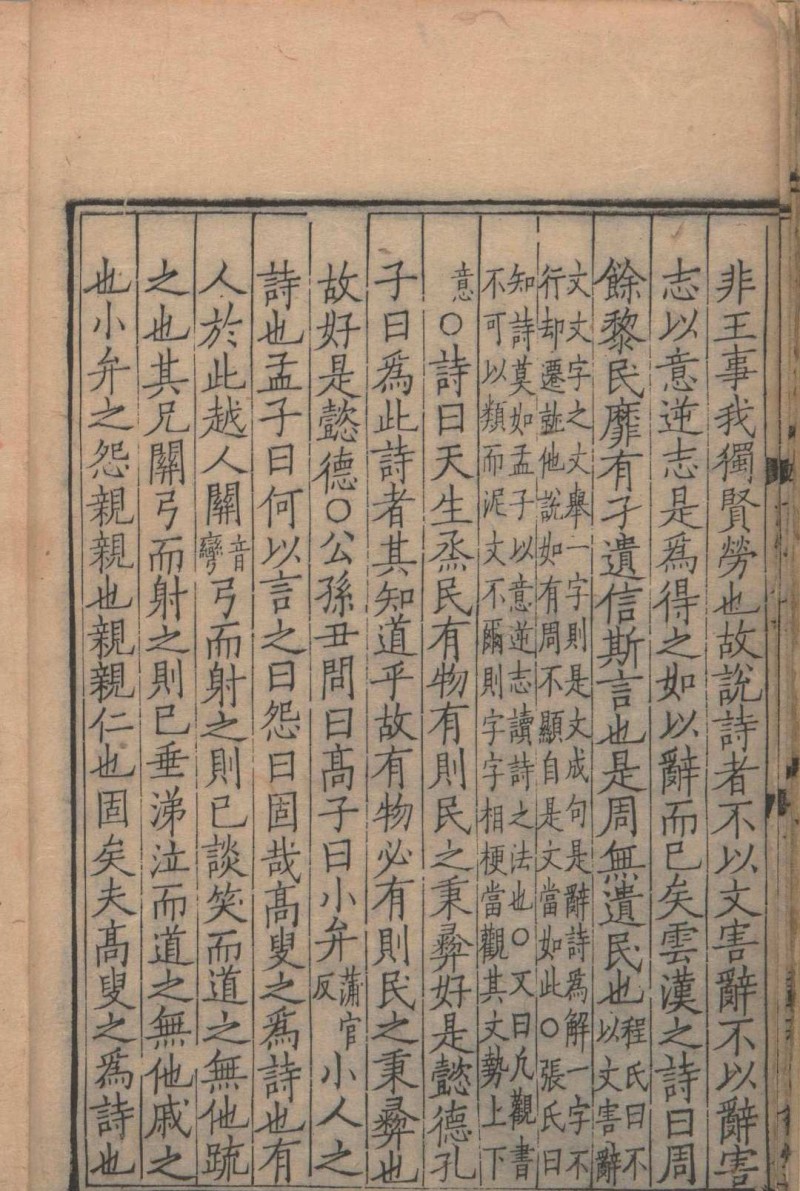 非王事我獨賢勞也故說詩者不以文害辭不以辭害
志以意逆志是爲得之如以辭而已矣雲漢之詩曰周
餘黎民靡有孑遺信斯言也是周無遺民也程氏曰不
以文害辭
文文字之文舉一字則是文成句是辭詩爲解一字不
行却遷就他說如有周不顯自是文當如此○張氏曰
知詩莫如孟子以意逆志讀詩之法也○又曰凡觀書
不可以類而泥文不爾則字字相梗當觀其文勢上下
意○詩曰天生烝民有物有則民之秉彝好是懿德孔
子曰爲此詩者其知道乎故有物必有則民之秉彝也
故好是懿德○公孫丑問曰高子曰小弁蒲官反小人之
詩也孟子曰何以言之曰怨曰固哉高叟之爲詩也有
人於此越人關音彎弓而射之則已談笑而道之無他踈
之也其兄關弓而射之則已垂涕泣而道之無他戚之
也小弁之怨親親也親親仁也固矣夫高叟之爲詩也